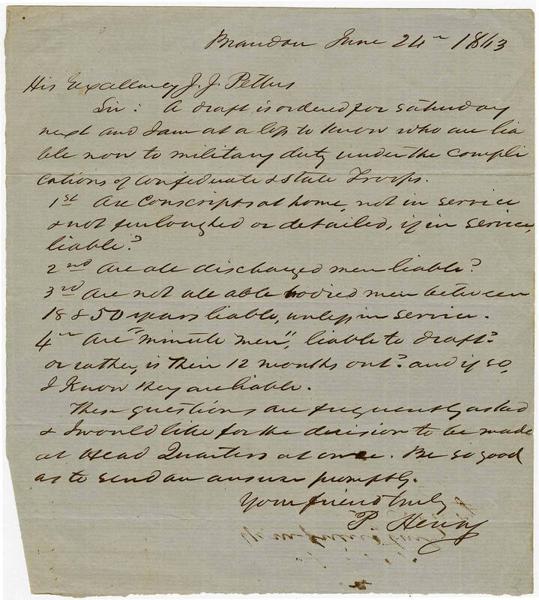 Brandon June 24th 1863
His Excellency J. J. Pettus
Sir: A draft is ordered for Saturday
next and I am at a loss to know who are lia
ble now to military duty under the compli
cations of Confederate & State Troops.
1st Are conscripts at home, not in service
& not furloughed or detailed, if in service,
liable?
2nd Are all discharged men liable?
3rd Are not all able bodied men between
18 & 50 years liable, unless in service.
4th Are "minute men", liable to draft?
or rather, is their 12 months out? and if so,
I know they are liable.
These questions are frequently asked
& I would like for the decision to be made
at Head Quarters at once. Be so good
as to send an answer promptly.
Your friend truly
P. Henry